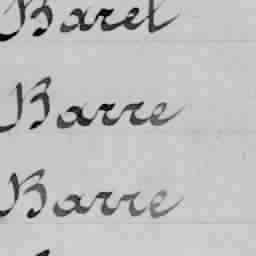 Barel
Barre
Barre